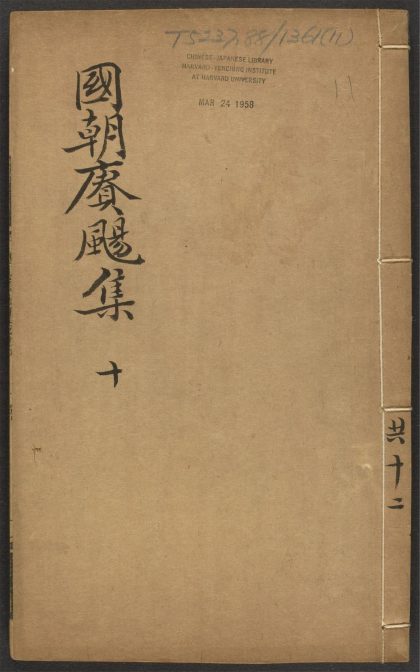 T5237.88/1361(11)
CHINESE-JAPANESE LIBRARY
HARVARD-YENCHING INSTITUTE
AT HARVARD UNIVERSITY
MAR 24 1958
11
國朝賡颺集
十
共十二